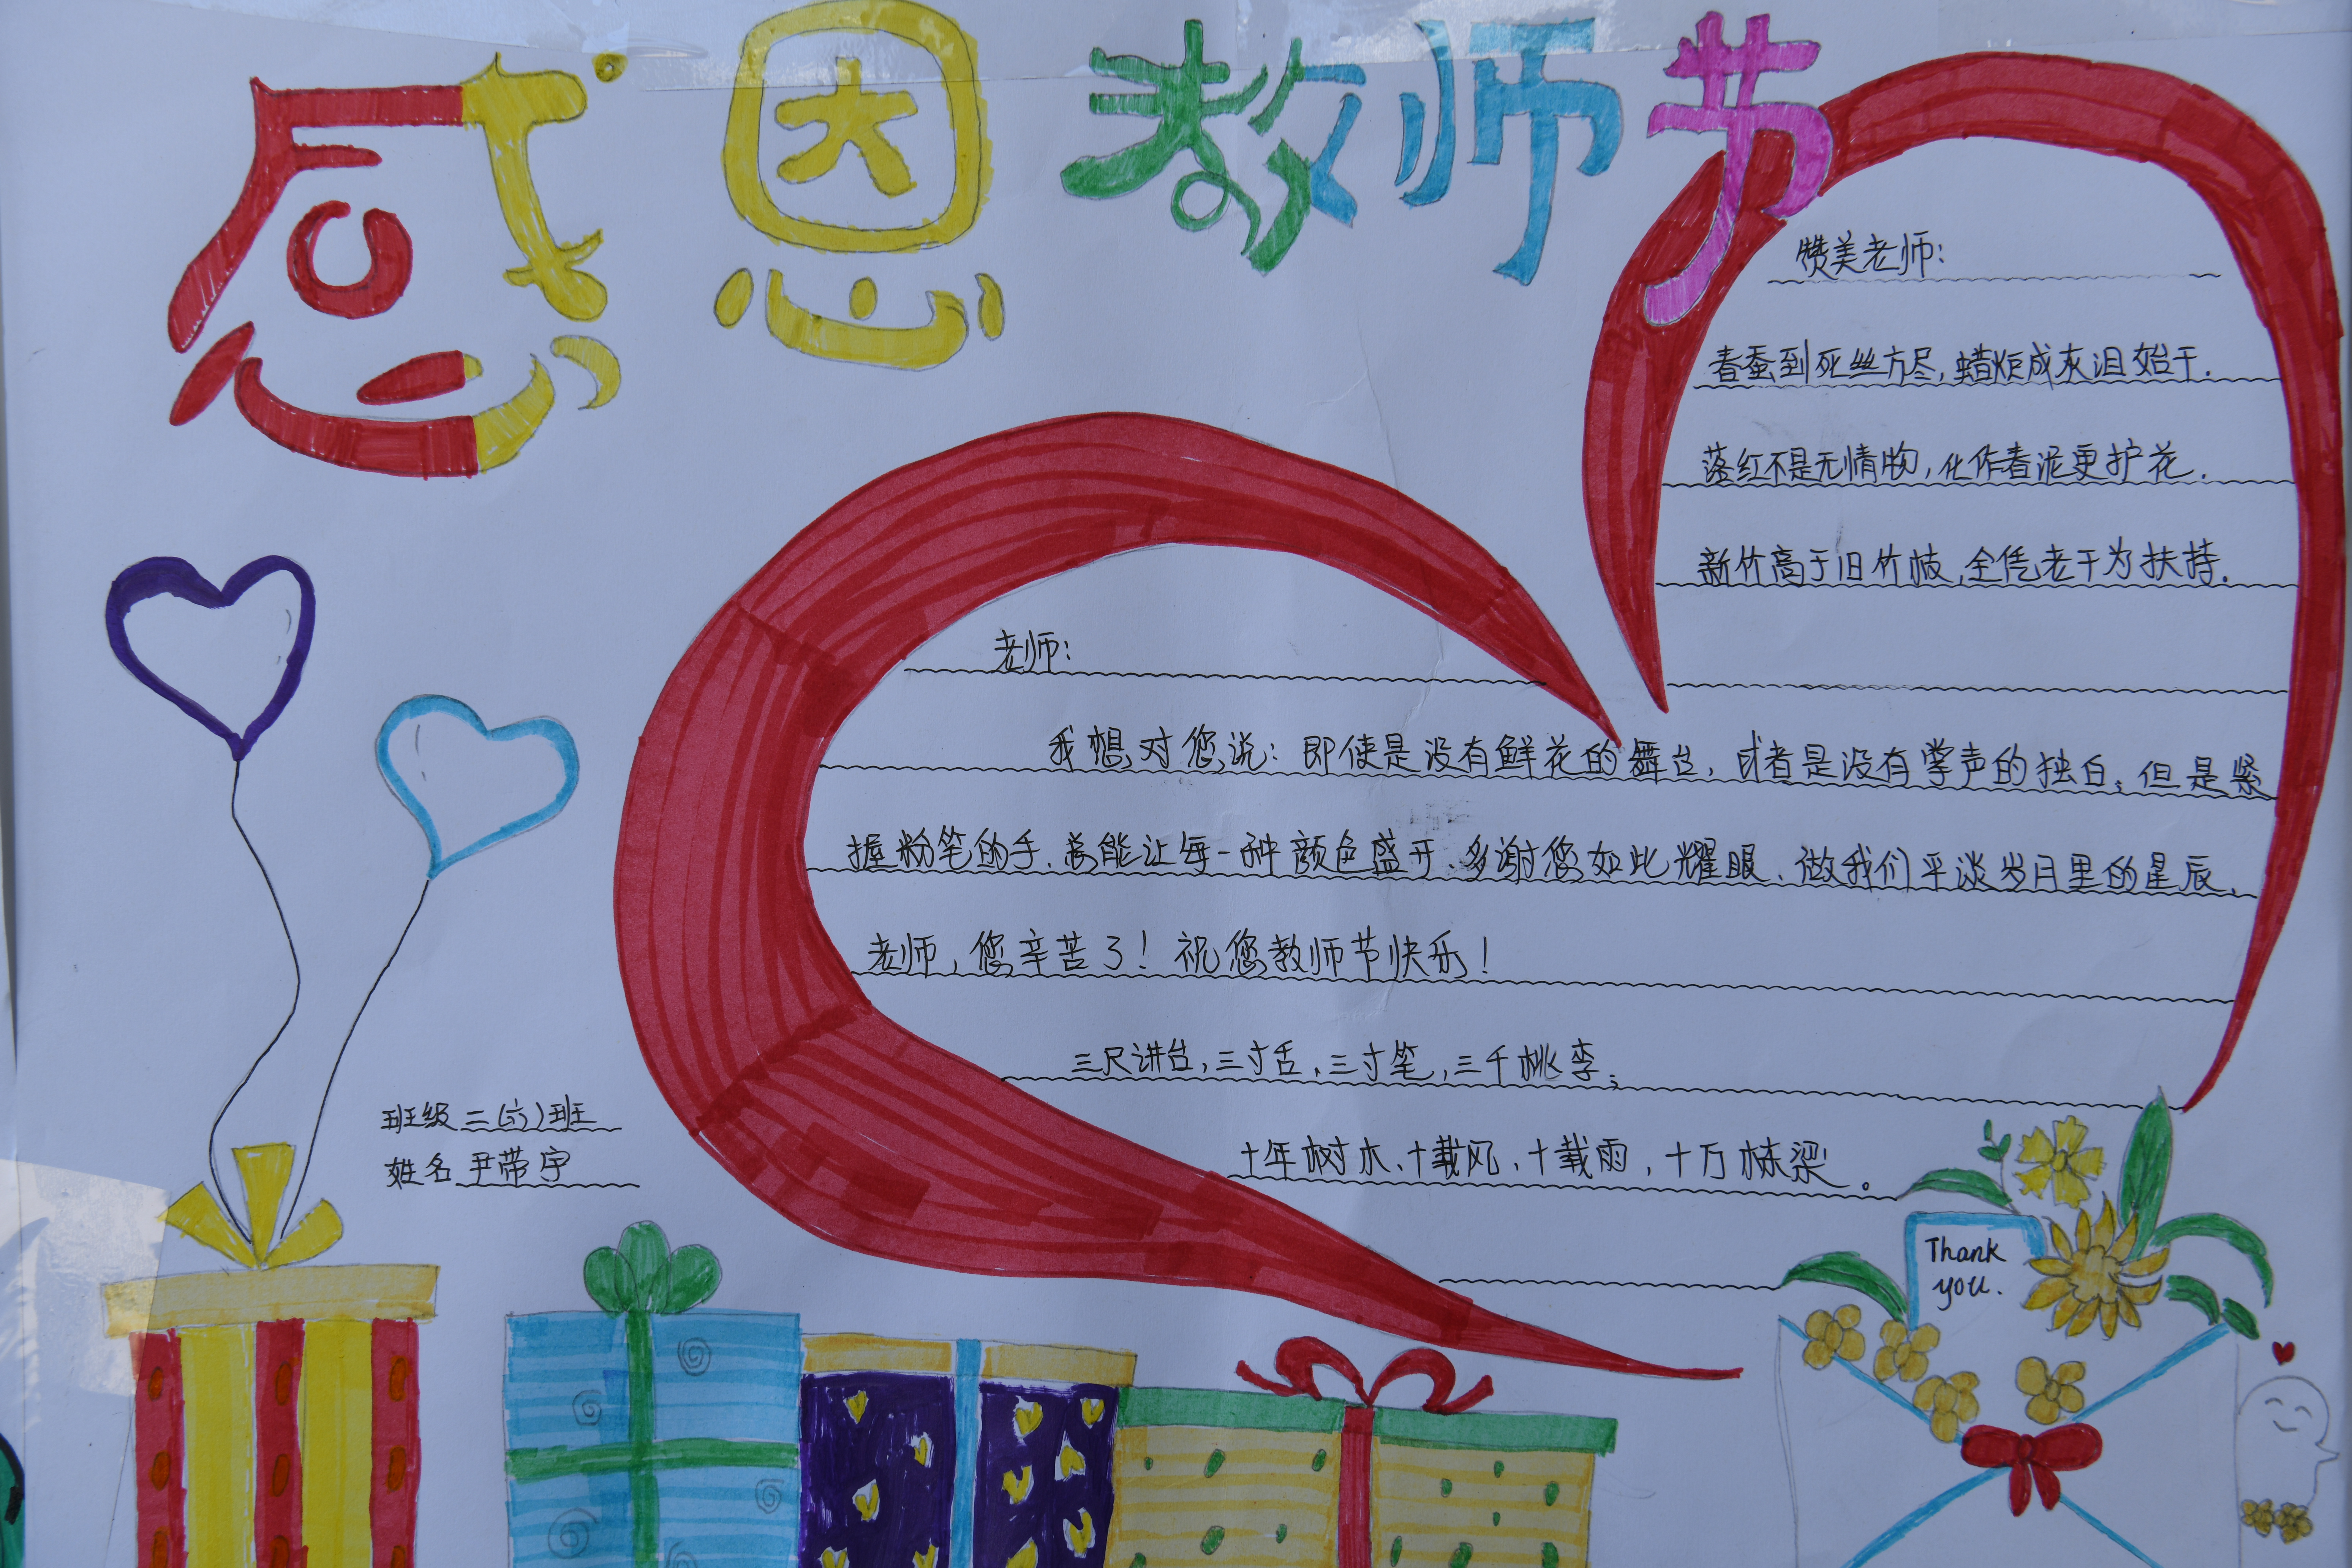 感恩教师节
赞美老师：
春蚕到死丝方尽,蜡炬成灰泪始干.
落红不是无情物,化作春泥更护花.
新竹高于旧竹枝,全凭老干为扶持.
老师：
我想对您说：即使是没有鲜花的舞台,或者是没有掌声的独白;但是紧
握粉笔的手,总能让每一种颜色盛开.多谢您如此耀眼、做我们平淡岁月里的星辰.
老师,您辛苦了！祝您教师节快乐！
三尺讲台,三寸舌、三寸笔,三千桃李;
十年树木、十载风、十载雨,十万栋梁。
班级 二(六)班
姓名 尹带宇
Thank
you.